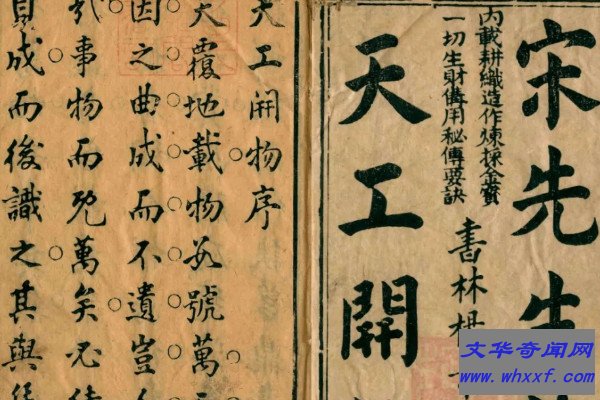 宋先生
内載耕織造作煉採金寶
一切生財備用秘傳要訣
書林楊
天工開
天工開物序
天覆地載物数號萬
因之曲成而不遺豈
哉事物而既萬矣必待
目成而後識之其與
文华奇闻网
www.whxxf.com